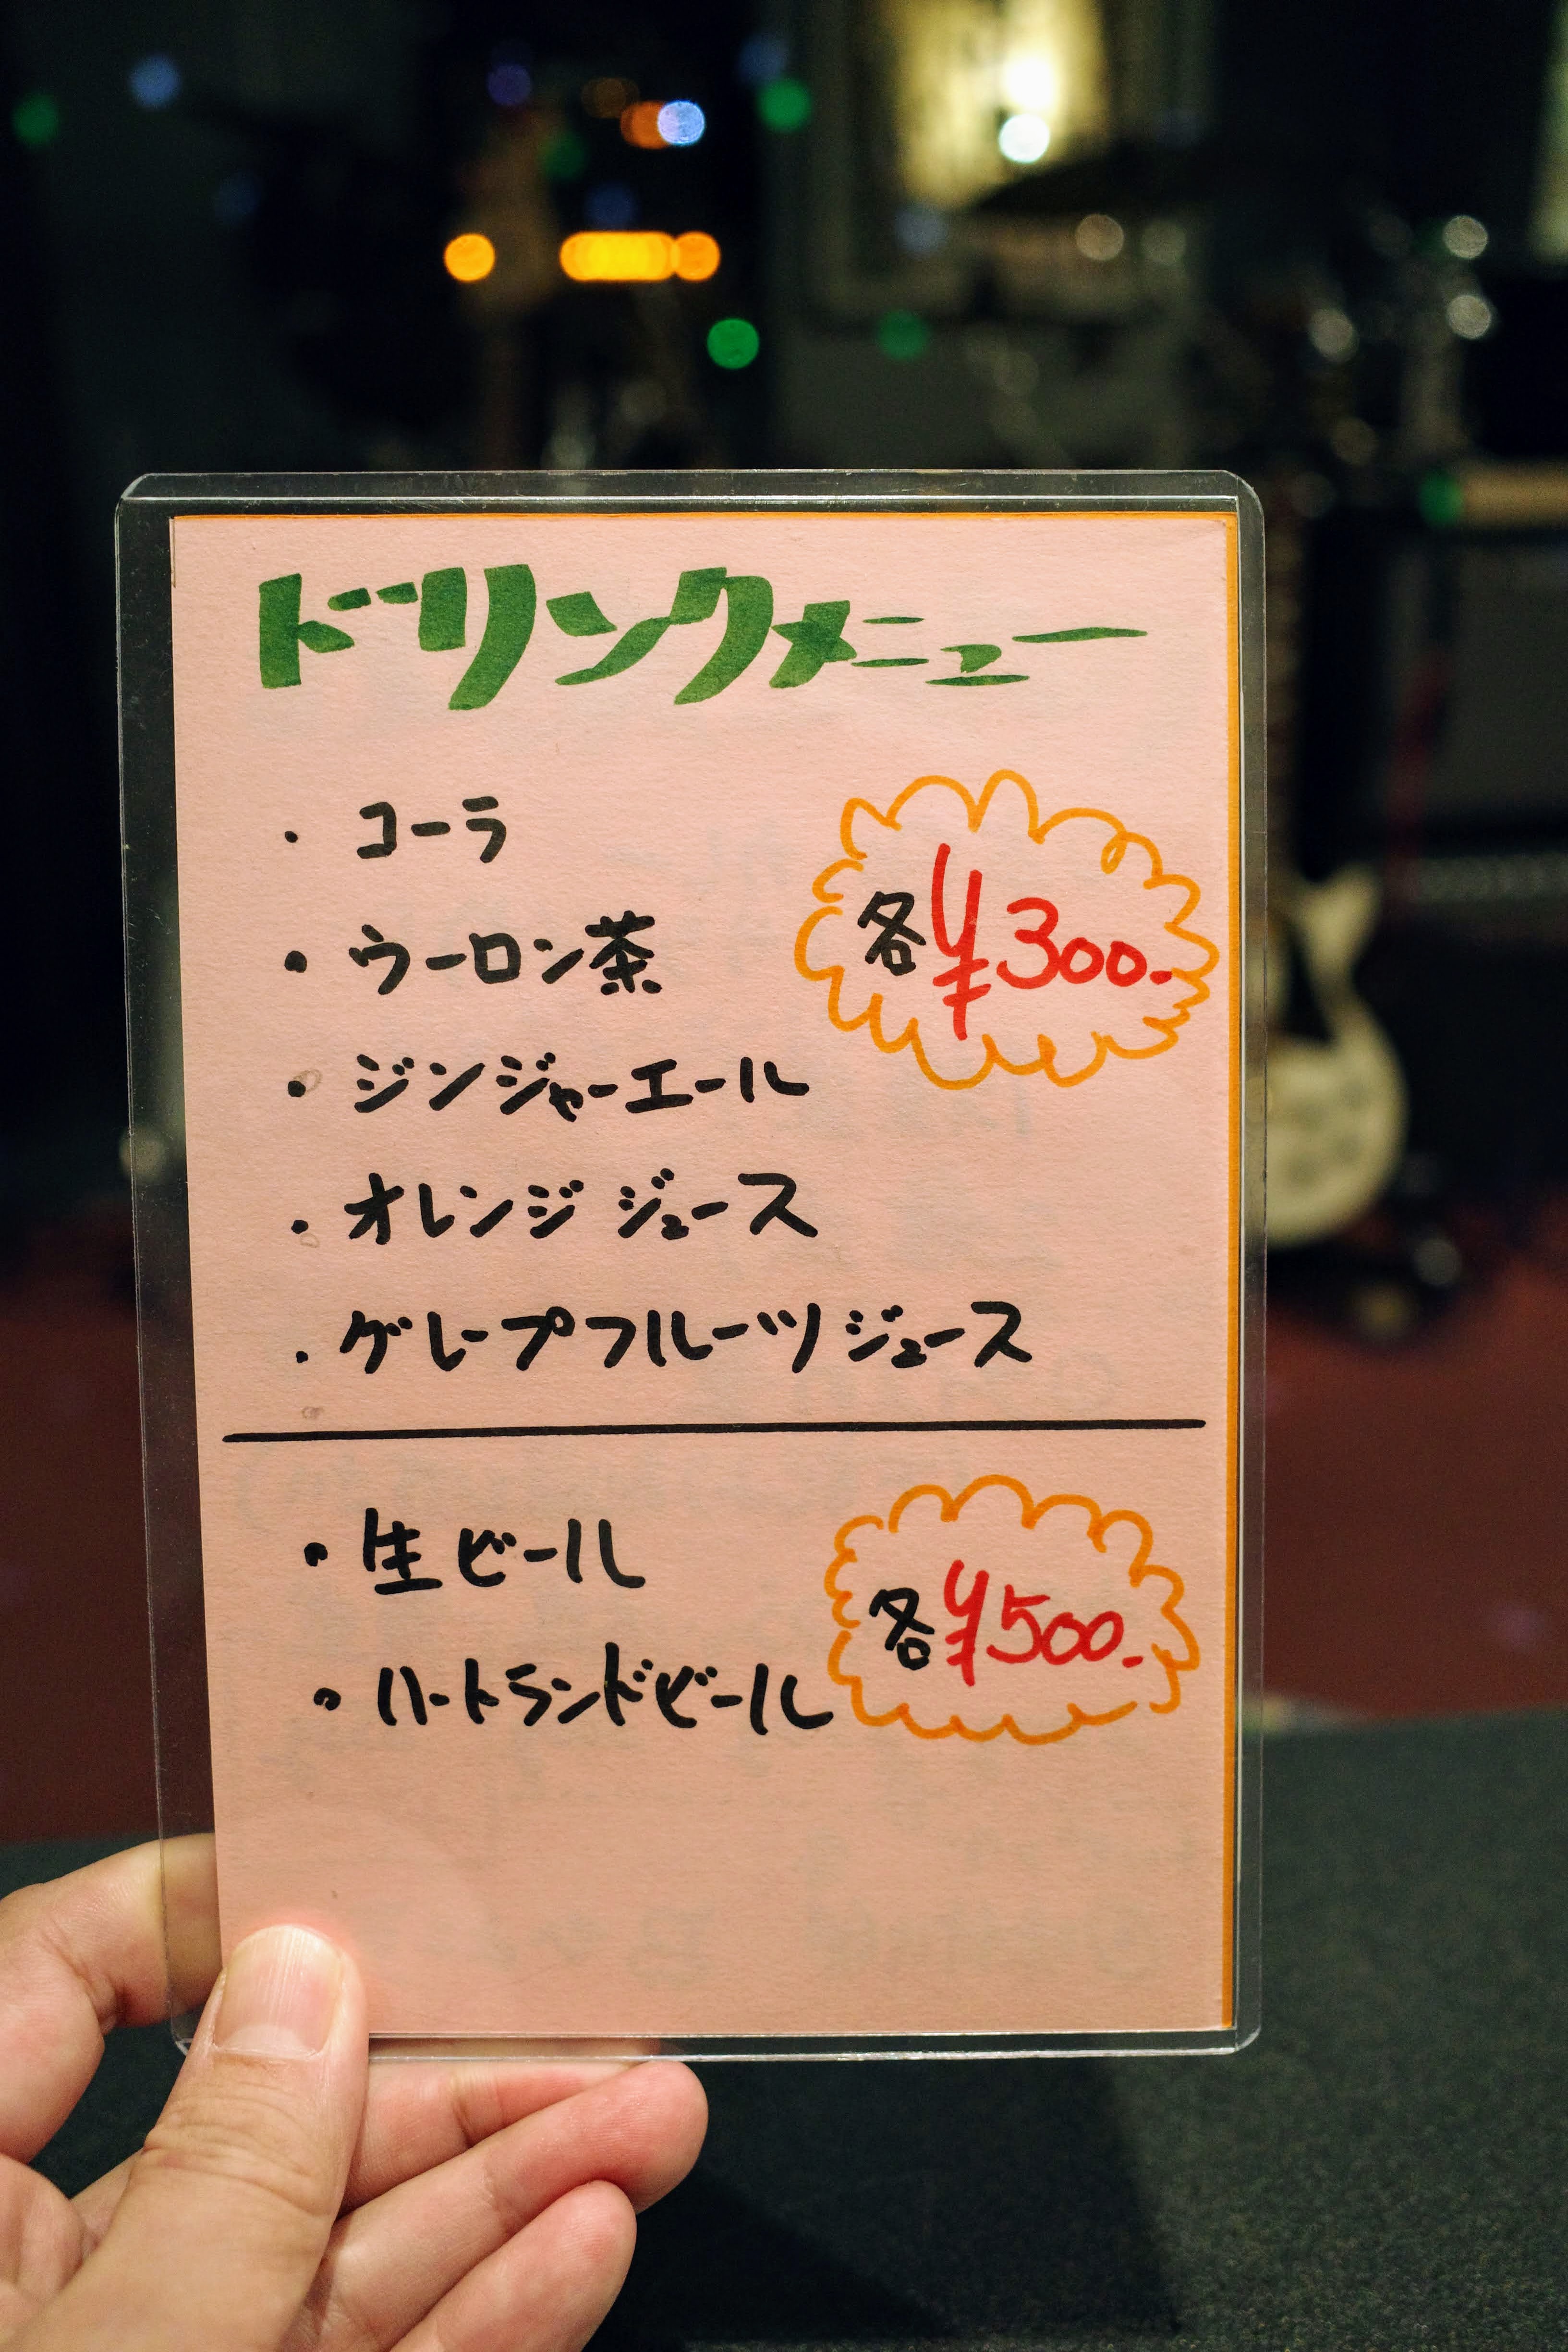 ドリンクメニュー
・コーラ
・ウーロン茶
各¥300-
・ジンジャーエール
・オレンジジュース
・グレープフルーツジュース
・生ビール
各¥500-
・ハートランドビール